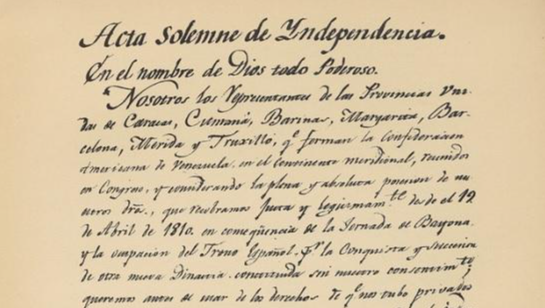 Acta Solemne de Yndependencia.
En el nombre de Dios todo Poderoso.
Nosotros los Representantes de las Provincias Vni-
das de Caracas, Cumaná, Barinas, Margarita, Bar-
celona, Mérida y Truxillo, q.e forman la Confederacion
Americana de Venezuela en el continente meridional, reunidos
en Congreso, y considerando la plena y absoluta posesion de nu-
estros dros., que recobramos justa y legitimam.te desde el 19
de Abril de 1810. en conseqüencia de la Jornada de Bayona,
y la ocupacion del Trono Español p.r la Conquista y succecion
de otra nueva Dinastia constituida sin nuestro consentim.to
queremos antes de usar de los derechos de q.e nos tubo privados